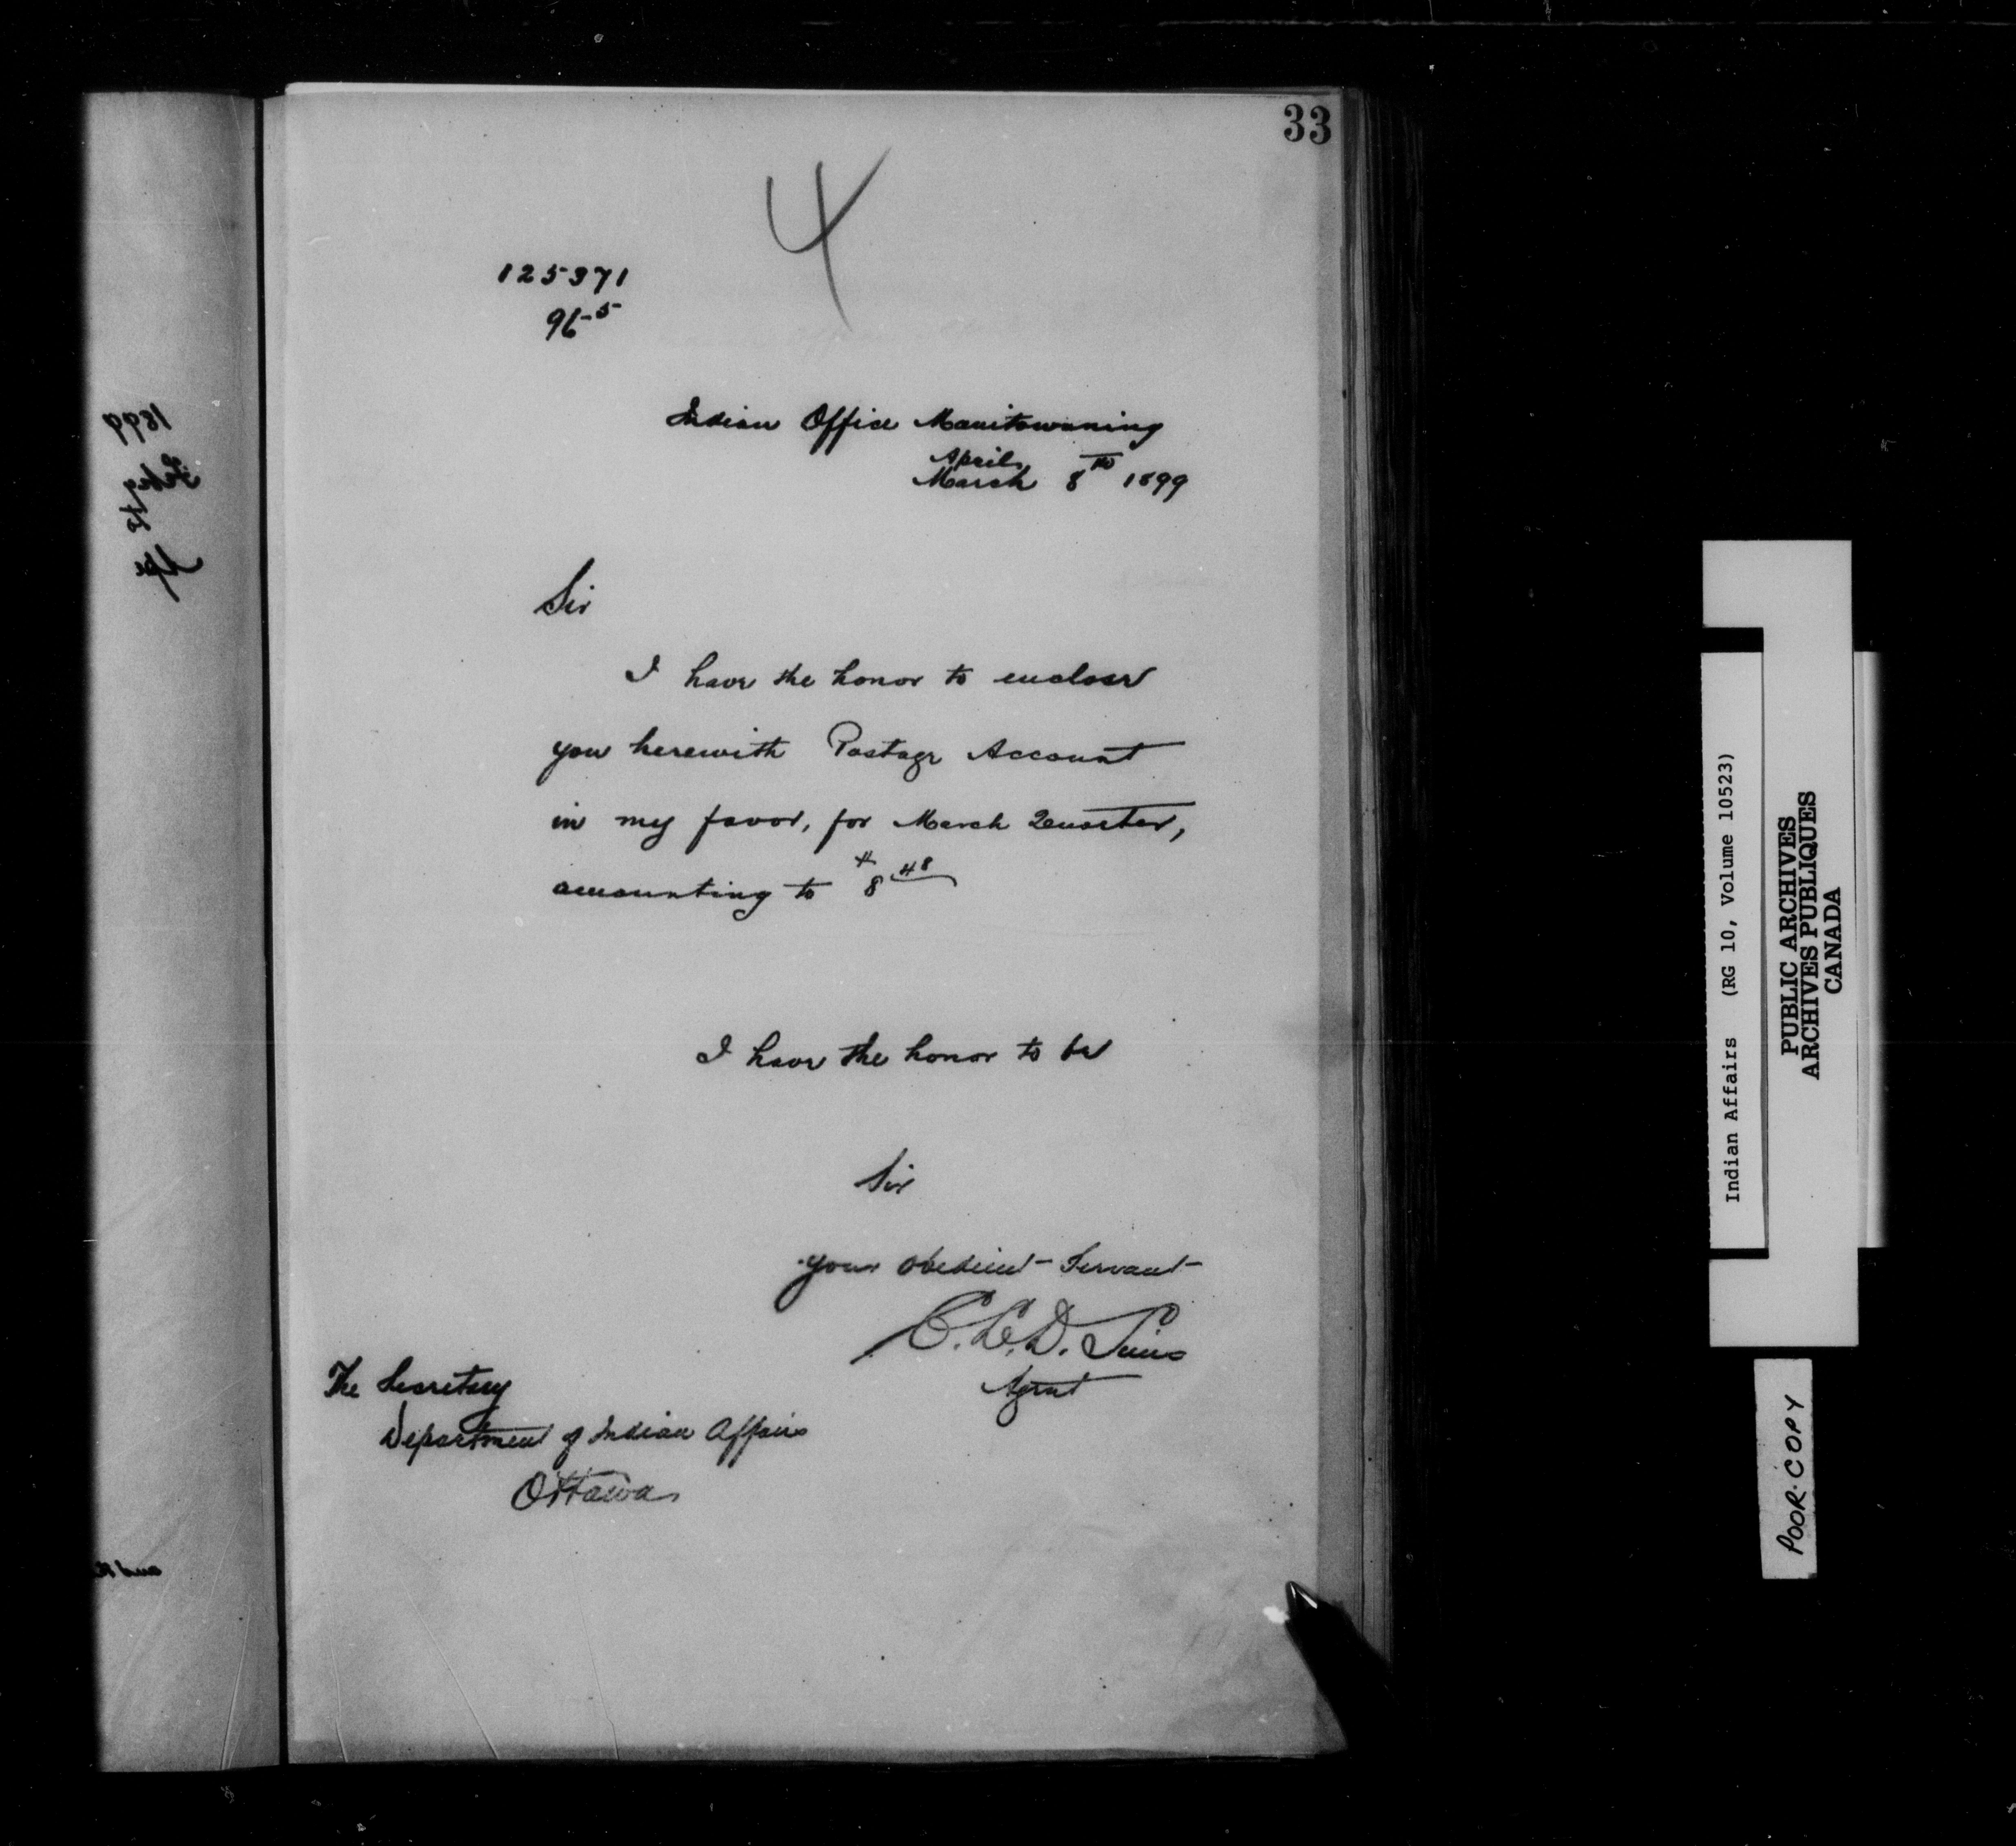 33
4
125371
96-5
Indian Office Manitowaning
April
March 8th 1899
Sir
I have the honor to enclose
you herewith Postage Account
in my favor, for March Quarter,
amounting to $8 48
I have the honor to be
Sir
your obedient Servant
C.L.D. Sims
Agent
The Secretary
Department of Indian Affairs
Ottawa
Indian Affairs (RG 10, Volume 10523)
PUBLIC ARCHIVES
ARCHIVES PUBLIQUES
CANADA
POOR COPY
1899